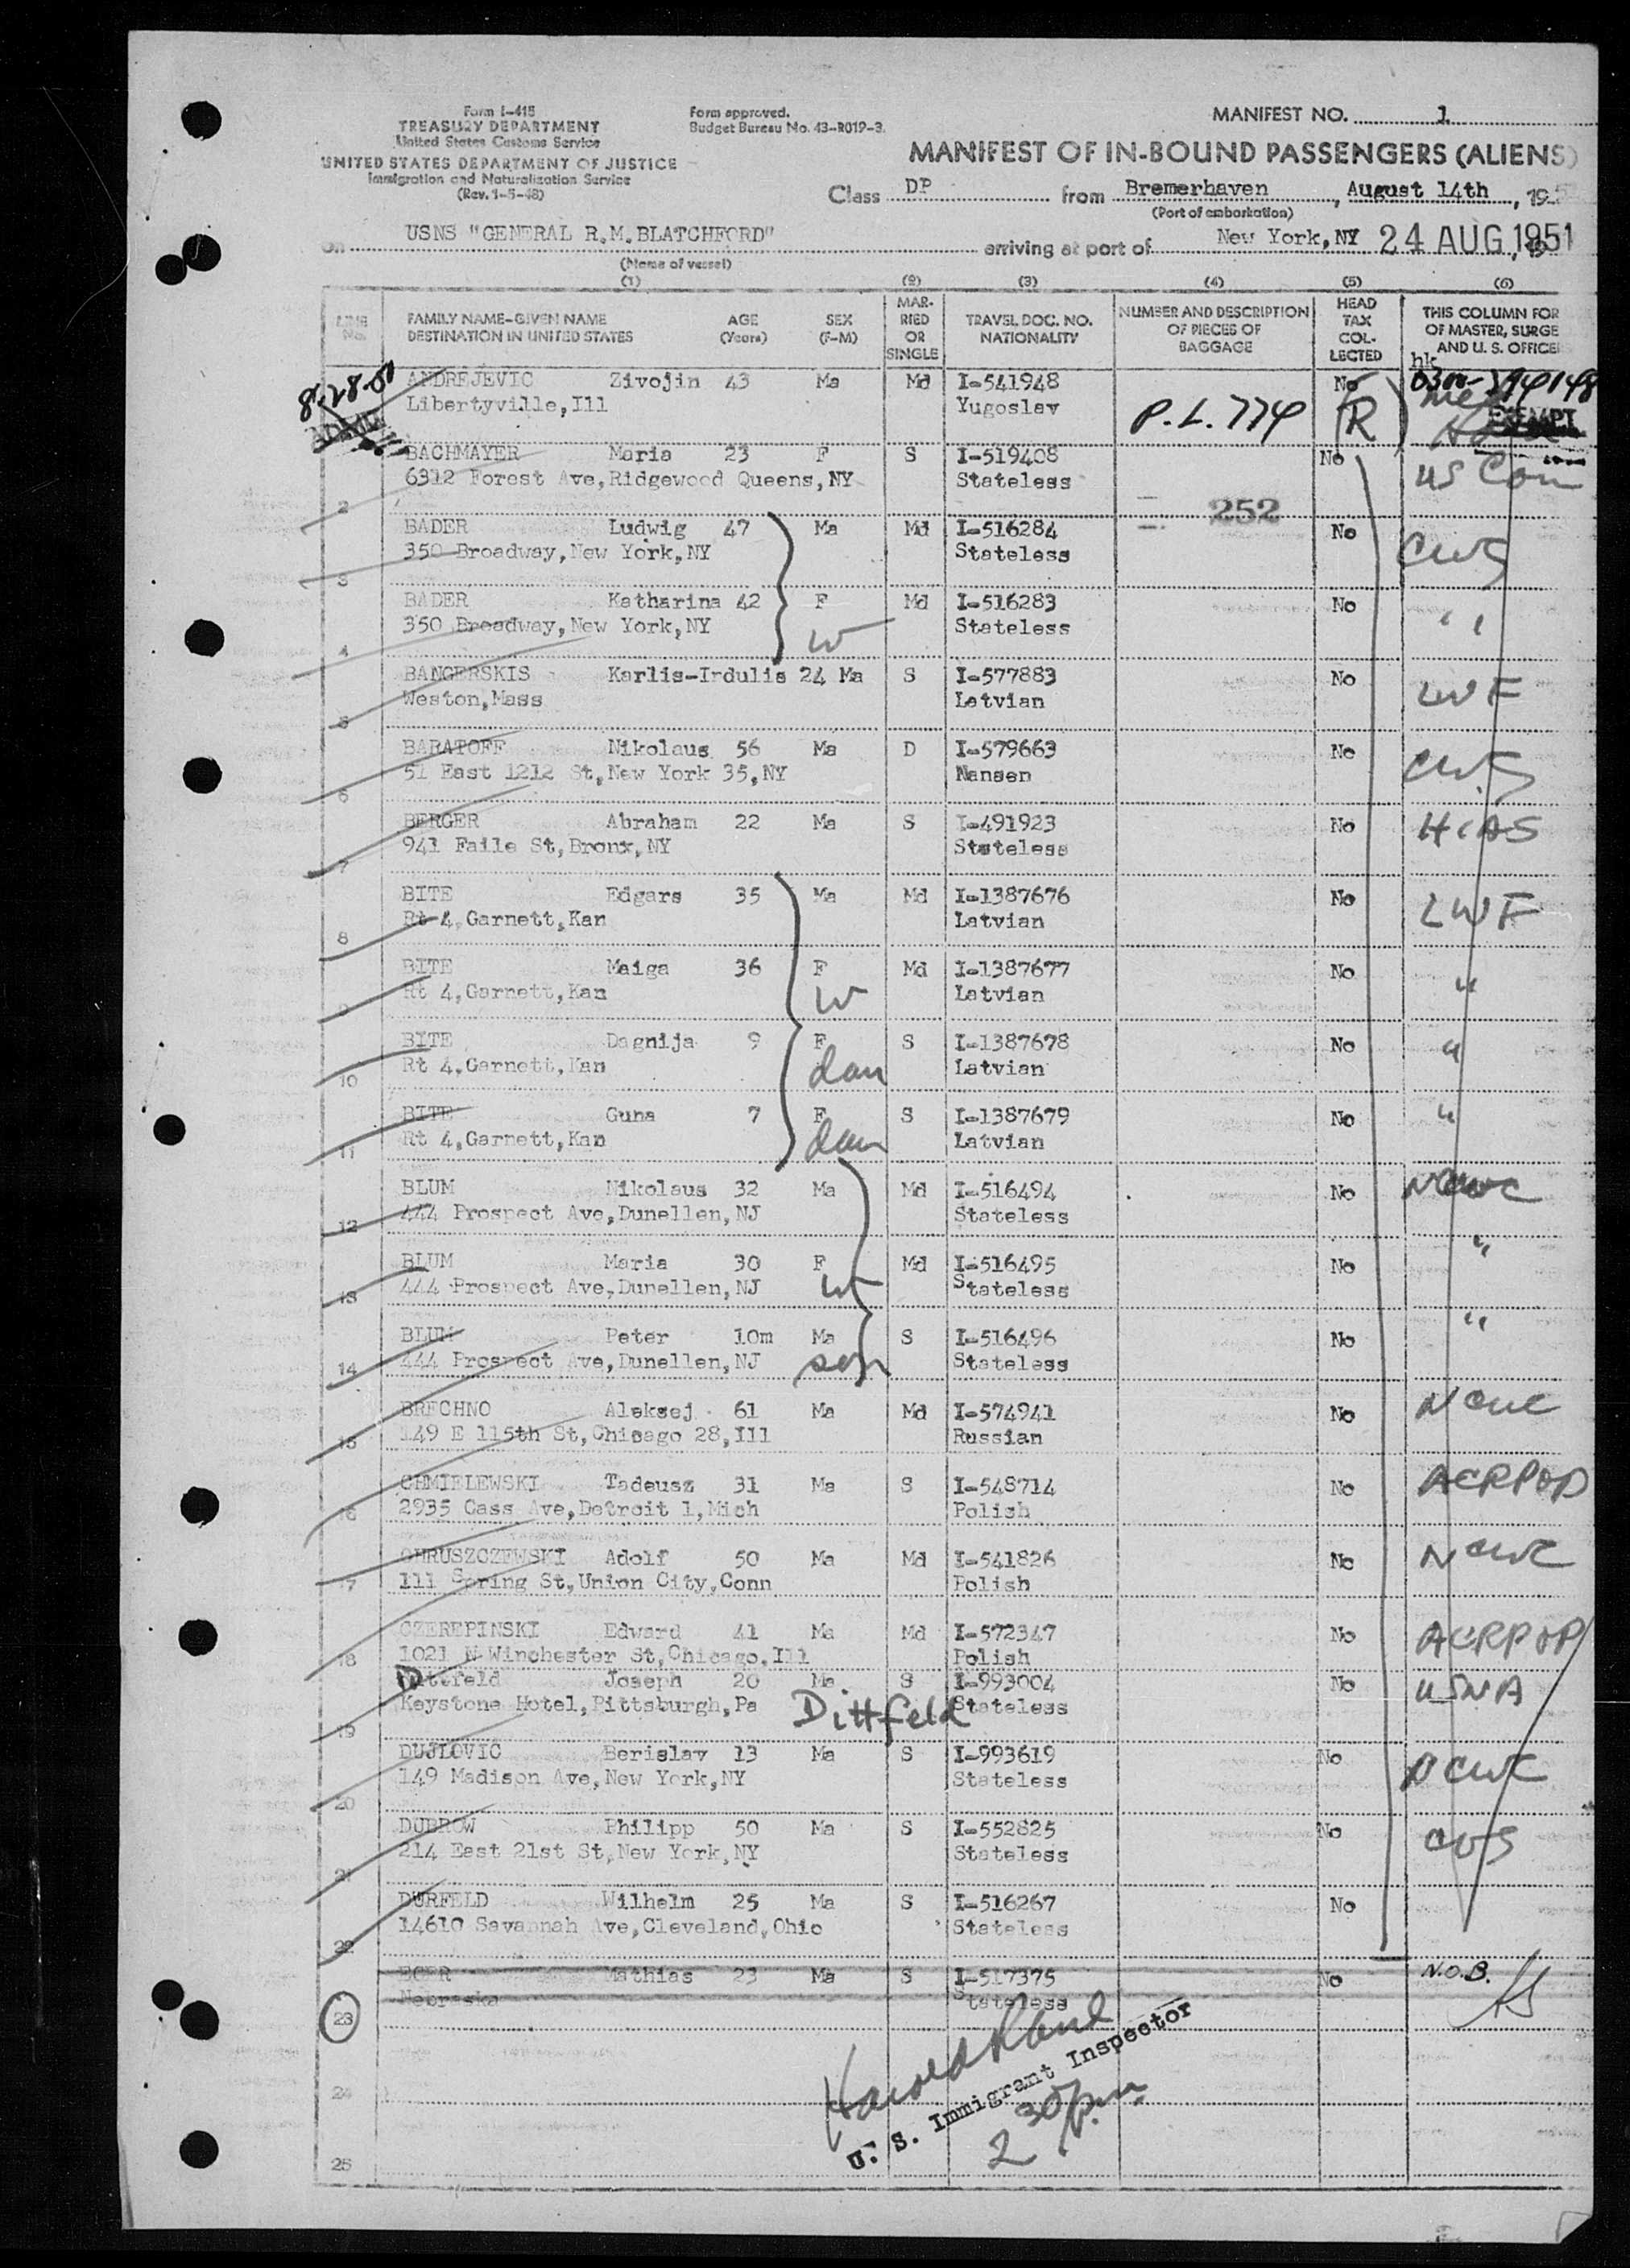 Form I-415
TREASURY DEPARTMENT
United States Customs Service
UNITED STATES DEPARTMENT OF JUSTICE
Immigration and Naturalization Service
(Rev. 1-5-48)
Form approved.
Budget Bureau No. 43-R019-3.
MANIFEST NO. 1
MANIFEST OF IN-BOUND PASSENGERS (ALIENS)
Class DP from Bremerhaven, August 14th, 195
(Port of embarkation)
on USNS "GENERAL R.M.BLATCHFORD" arriving at port of New York, NY 24 AUG 1951
(Name of vessel)
(1) (2) (3) (4) (5) (6)
LINE No. FAMILY NAME-GIVEN NAME DESTINATION IN UNITED STATES AGE (Years) SEX (F-M) MARRIED OR SINGLE TRAVEL DOC. NO. NATIONALITY NUMBER AND DESCRIPTION OF PIECES OF BAGGAGE HEAD TAX COLLECTED THIS COLUMN FOR OF MASTER, SURGE AND U. S. OFFICE
8-28-51 ANDREJEVIC Zivojin 43 Ma Md I-541948 No
Libertyville, Ill Yugoslav P.L. 774 R EXEMPT
BACHMAYER Maria 23 F S I-519408 No US Com
2 6312 Forest Ave, Ridgewood Queens, NY Stateless
252
BADER Ludwig 47 Ma Md I-516284 No CWS
3 350 Broadway, New York, NY Stateless
BADER Katharina 42 F Md I-516283 No "
4 350 Broadway, New York, NY W Stateless
BANGERSKIS Karlis-Irdulis 24 Ma S I-577883 No LWF
5 Weston, Mass Latvian
BARATOFF Nikolaus 56 Ma D I-579663 No CWS
6 51 East 1212 St, New York 35, NY Nansen
BERGER Abraham 22 Ma S I-491923 No HIAS
7 941 Faile St, Bronx, NY Stateless
BITE Edgars 35 Ma Md I-1387676 No LWF
8 Rt 4, Garnett, Kan Latvian
BITE Maiga 36 F Md I-1387677 No "
9 Rt 4, Garnett, Kan W Latvian
BITE Dagnija 9 F S I-1387678 No "
10 Rt 4, Garnett, Kan dau Latvian
BITE Guna 7 F S I-1387679 No "
11 Rt 4, Garnett, Kan dau Latvian
BLUM Nikolaus 32 Ma Md I-516494 No NCWC
12 444 Prospect Ave, Dunellen, NJ Stateless
BLUM Maria 30 F Md I-516495 No "
13 444 Prospect Ave, Dunellen, NJ W Stateless
BLUM Peter 10m Ma S I-516496 No "
14 444 Prospect Ave, Dunellen, NJ son Stateless
BRECHNO Aleksej 61 Ma Md I-574941 No NCWC
15 149 E 115th St, Chicago 28, Ill Russian
CHMIELEWSKI Tadeusz 31 Ma S I-548714 No ACRPDP
16 2935 Cass Ave, Detroit 1, Mich Polish
CHRUSZCZEWSKI Adolf 50 Ma Md I-541826 No NCWC
17 111 Spring St, Union City, Conn Polish
CZEREPINSKI Edward 41 Ma Md I-572347 No ACRPDP
18 1021 N Winchester St, Chicago, Ill Polish
Dittfeld Joseph 20 Ma S I-993004 No USNA
19 Keystone Hotel, Pittsburgh, Pa Dittfeld Stateless
DUJLOVIC Berislav 13 Ma S I-993619 No NCWC
20 149 Madison Ave, New York, NY Stateless
DUBROW Philipp 50 Ma S I-552825 No CWS
21 214 East 21st St, New York, NY Stateless
DURFELD Wilhelm 25 Ma S I-516267 No
22 14610 Savannah Ave, Cleveland, Ohio Stateless
EGER Mathias 23 Ma S I-517375 No N.O.B.
23 Nebraska Stateless
24
U. S. Immigrant Inspector
2 30 p.m.
25